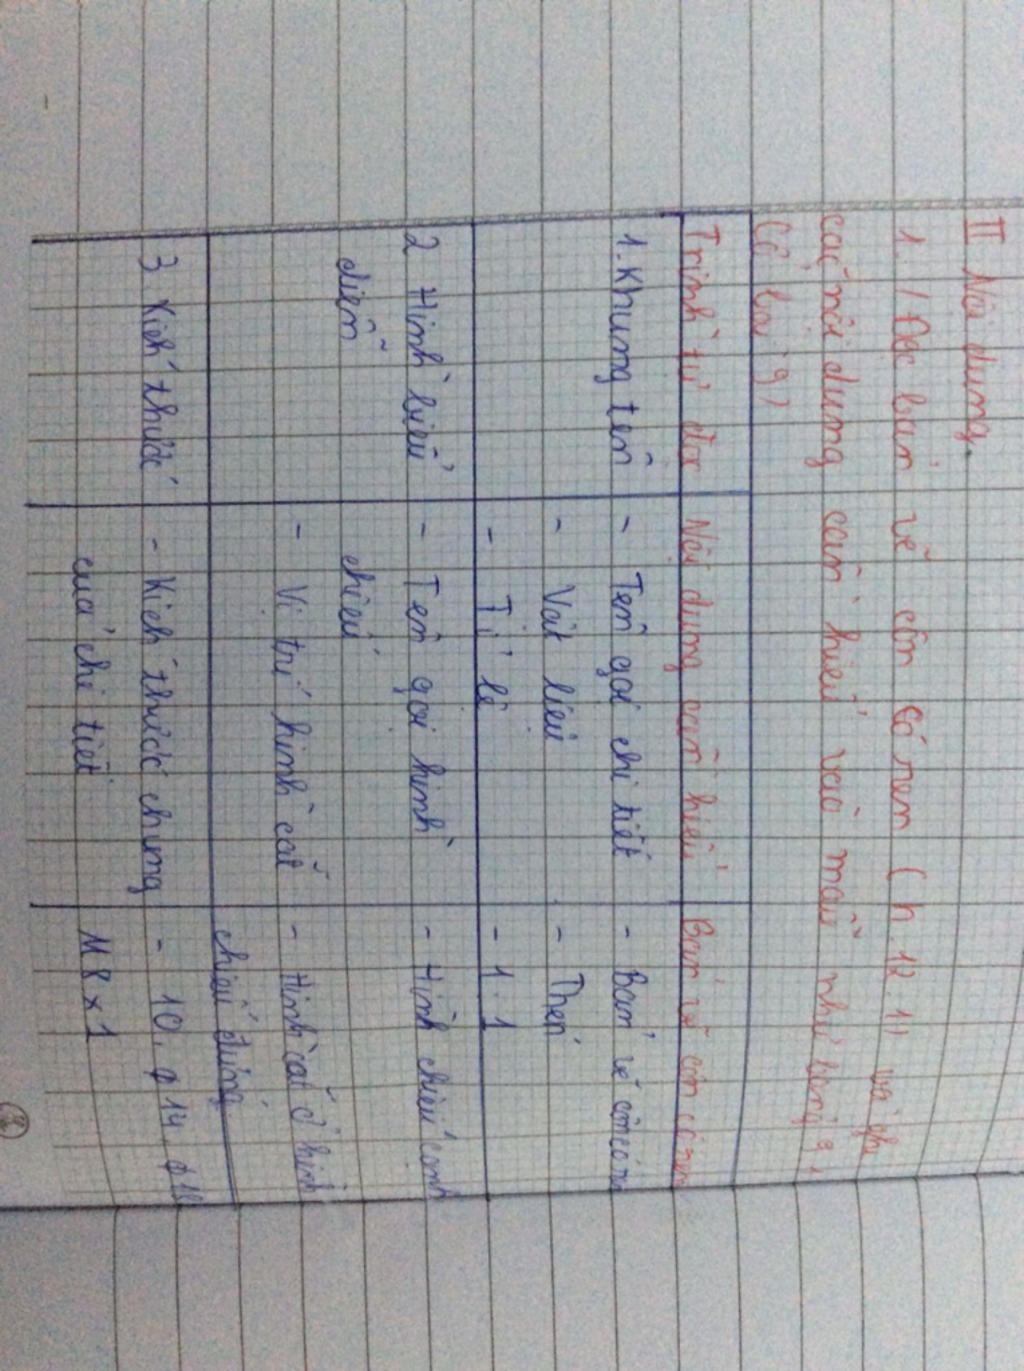 II Nội dung.
1. / Đọc bản vẽ côn có ren ( h.12.1) và ghi
các nội dung cần hiểu vào mẫu như bảng 9.1
Trình tự đọc Nội dung cần hiểu Bản vẽ côn có ren
1. Khung tên - Tên gọi chi tiết - Bản vẽ côn có ren
- Vật liệu - Thép
- Tỉ lệ - 1:1
2 Hình biểu - Tên gọi hình - Hình chiếu cạnh
diễn chiếu
- Vị trí hình cắt - Hình cắt ở hình
chiếu đứng
3 Kích thước - Kích thước chung - 10, φ 14, φ18
của chi tiết M8 x 1